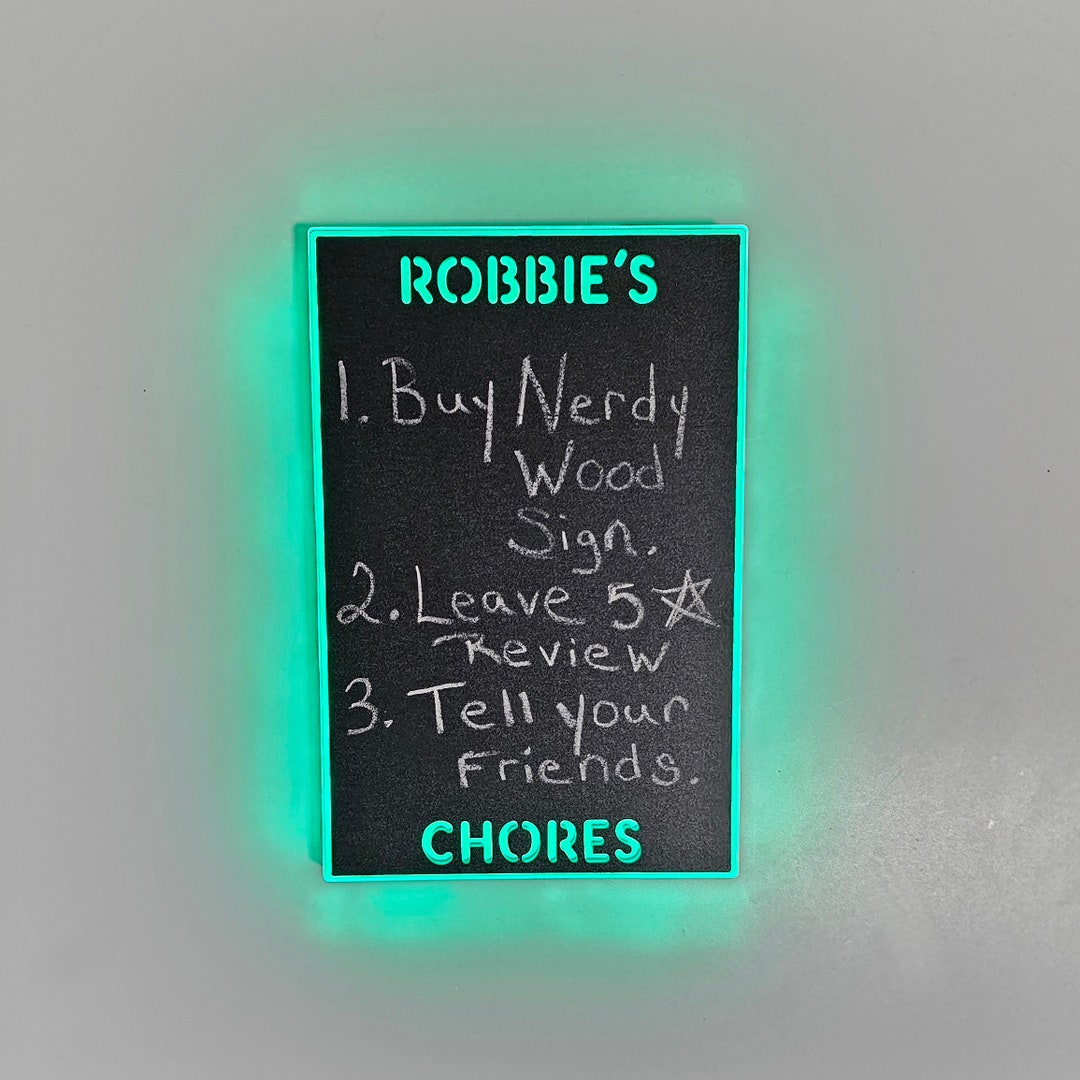 ROBBIE'S
1. Buy Nerdy
Wood
Sign.
2. Leave 5☆
Review
3. Tell your
Friends.
CHORES